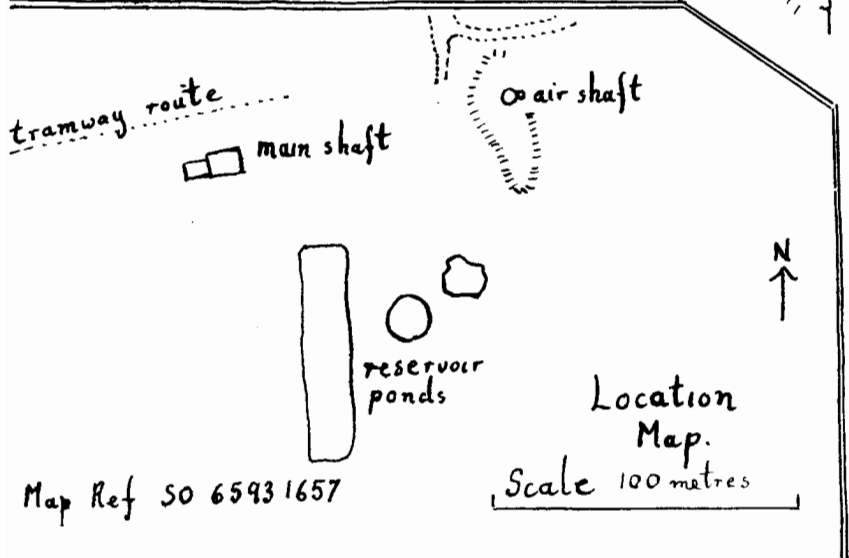 air shaft
tramway route
main shaft
N
reservoir
ponds
Location
Map.
Scale 100 metres
Map Ref SO 65931657